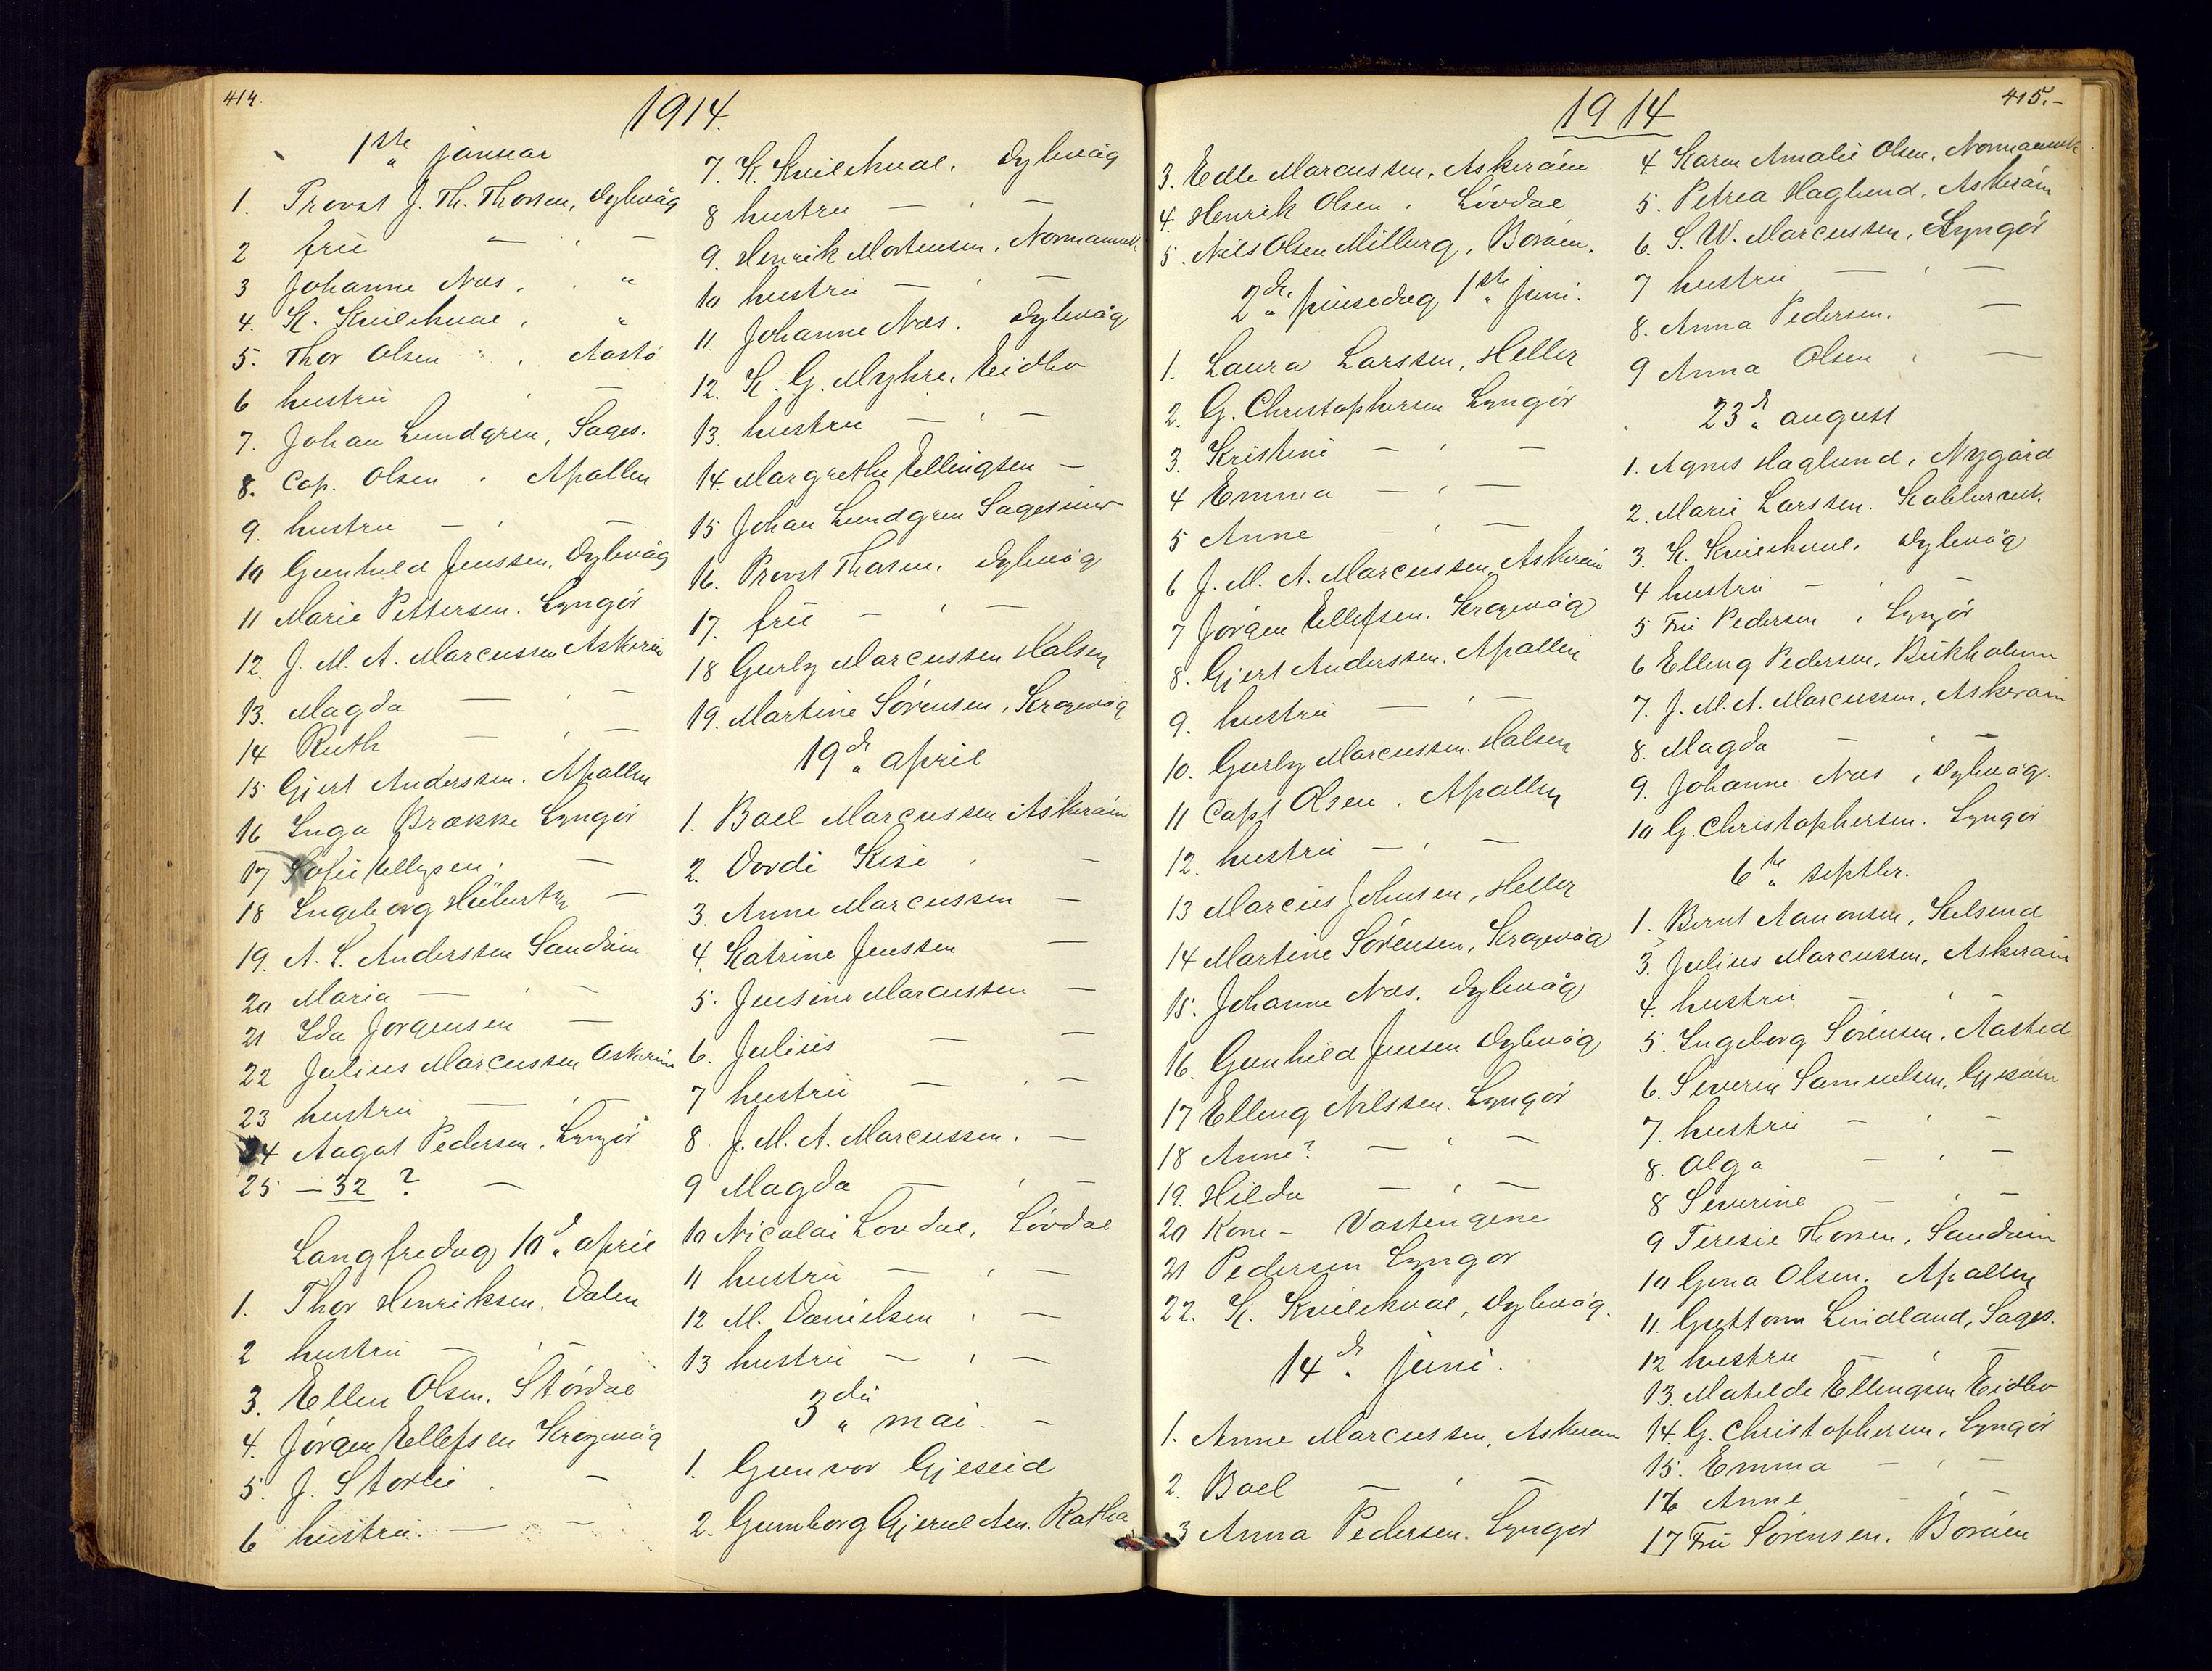 414.
1914.
1ste januar
1. Provst J. Th. Thorsen, Dybvåg
2 frü — , —
3 Johanne Næs, . "
4. K. Kvilekval, "
5. Thor Olsen , Aastö
6 hustrü , —
7. Johan Lundgren, Sages.
8. Cap. Olsen , Apallen
9. hustru — , —
10 Gunhild Jenssen, Dybvåg
11 Marie Pettersen. Lyngör
12. J. M. A. Marcussen Askeröin
13. Magda — , —
14 Ruth — , —
15 Gjert Anderssen. Apallen
16 Inga Brække Lyngör
17 Sofie Ellegsen, —
18 Ingeborg —
19. A. L. Anderssen Sandöin
20 Maria — , —
21 Ida Jörgensen —
22 Julius Marcussen Askeröin
23 hustru — , —
24 Aagot Pedersen, Lyngör
25 — 32 ? —
Langfredag 10de april
1. Thor Henriksen, Dalen
2 hustrü — , —
3. Ellen Olsen, Stördal
4. Jörgen Ellefsen Krogvåg
5. J. Storlie . —
6 hustru. — —
7. K. Kvilekval, Dybvåg
8 hustru — , —
9. Henrik Mortensen, Normannvik
10 hustrü — , —
11. Johanne Næs. Dybvåg
12. K. G. Myhre, Eidbo
13. hustru — , —
14. Margrethe Ellingsen —
15 Johan Lundgren Sagesund
16. Provst Thorsen, Dybvåg
17. frü — , —
18 Gurly Marcussen Halsen
19. Martine Sörensen, Krogvåg
19de april
1. Boel Marcussen Askeröin
2. Dordi Kise , —
3. Anne Marcussen —
4. Katrine Jenssen —
5. Jensine Marcussen —
6. Julius — —
7 hustrü — , —
8 J. M. A. Marcussen. —
9 Magda — , —
10 Nicolai Lövdal, Lövdal
11 hustrü — , —
12 M. Danielsen , —
13 hustrü — , —
3die mai. —
1. Gunvor Gjeseid
2. Gunborg Gjeruldsen. Rotha
1914
415.-
3. Edle Marcussen, Askeröin
4. Henrik Olsen , Lövdal
5. Nils Olsen Milburg, Boröen.
2den pinsedag 1ste juni.
1. Laura Larssen, Heller
2. G. Christophersen Lyngör
3. Kristine — , —
4 Emma — , —
5 Anne — , —
6 J. M. A. Marcussen, Askeröin
7 Jörgen Ellefsen. Krogvåg
8. Gjert Anderssen. Apallen
9. hustrü — , —
10. Gurly Marcussen. Halsen
11 Capt Olsen, Apallen
12. hustrü — , —
13 Marcüs Johnsen, Heller
14 Martine Sörensen, Krogvåg
15. Johanne Næs, Dybvåg
16. Gunhild Jensen Dybvåg
17 Elling Nilssen. Lyngör
18 Anne? — , —
19. Hilda — , —
20 Kone — Vastengene
21 Pedersen Lyngor
22. K. Kvilekval, Dybvåg.
14de juni.
1. Anne Marcussen, Askeröin
2. Boel — , —
3 Anna Pedersen. Lyngor
4. Karen Amalie Olsen, Normannvik
5. Petrea Haglund, Askeröin
6. S. W. Marcussen, Lyngör
7 hustrü — , —
8. Anna Pedersen. —
9 Anna Olsen , —
23de august
1. Agnes Haglund, Nygård
2. Marie Larssen.
3. K. Kvilekval, Dybvåg
4 hustrü — , —
5 Frü Pedersen , Lyngör
6 Elling Pedersen, Bükholmen
7. J. M. A. Marcussen, Askeröin
8. Magda — , —
9. Johanne Næs , Dybvåg.
10 G. Christophersen. Lyngör
6te septbr.
1. Bernt Aanonsen, Kilsund
3. Julius Marcussen, Askeröin
4. hustrü — , —
5. Ingeborg Sörensen, Aasted
6. Severin Samuelsen,
7. hustrü — , —
8. Olga — , —
8 Severine — , —
9 Teresie Thorsen, Sandöin
10 Gena Olsen. Apallen
11. Guttorm Lindland, Sages.
12 hustru — , —
13. Matilde Ellingsen Eidbo
14. G. Christophersen, Lyngör
15. Emma — , —
16 Anne — , —
17 Frü Sörensen. Boröen